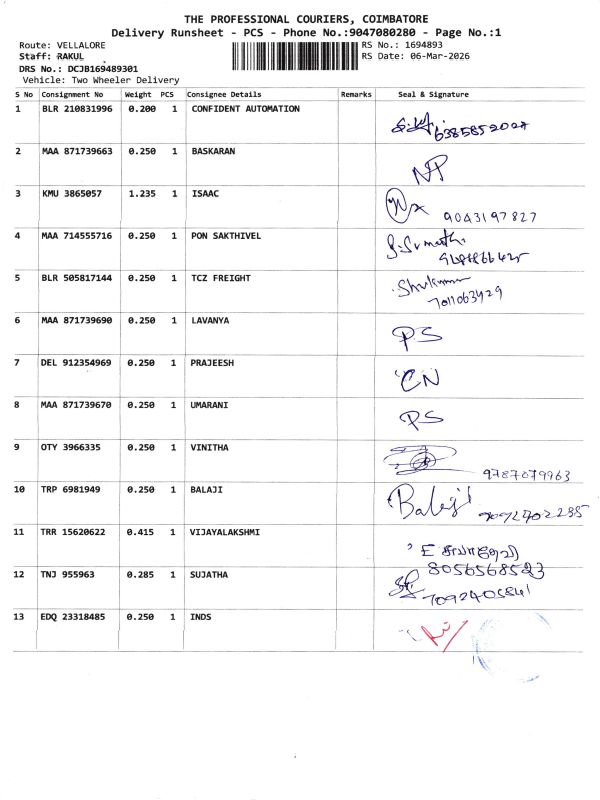 THE PROFESSIONAL COURIERS, COIMBATORE
Delivery Runsheet - PCS - Phone No.:9047080280 - Page No.:1
Route: VELLALORE
RS No.: 1694893
Staff: RAKUL
RS Date: 06-Mar-2026
DRS No.: DCJB169489301
Vehicle: Two Wheeler Delivery
S No Consignment No Weight PCS Consignee Details Remarks Seal & Signature
1 BLR 210831996 0.200 1 CONFIDENT AUTOMATION
6385852027
2 MAA 871739663 0.250 1 BASKARAN
NP
3 KMU 3865057 1.235 1 ISAAC
9043197827
4 MAA 714555716 0.250 1 PON SAKTHIVEL
5 BLR 505817144 0.250 1 TCZ FREIGHT
7011063429
6 MAA 871739690 0.250 1 LAVANYA
PS
7 DEL 912354969 0.250 1 PRAJEESH
CN
8 MAA 871739670 0.250 1 UMARANI
PS
9 OTY 3966335 0.250 1 VINITHA
9787079963
10 TRP 6981949 0.250 1 BALAJI
Balaji
11 TRR 15620622 0.415 1 VIJAYALAKSHMI
8056568523
12 TNJ 955963 0.285 1 SUJATHA
7092405841
13 EDQ 23318485 0.250 1 INDS